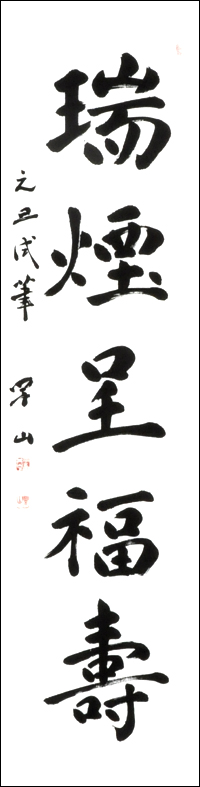 瑞煙呈福壽
元旦試筆